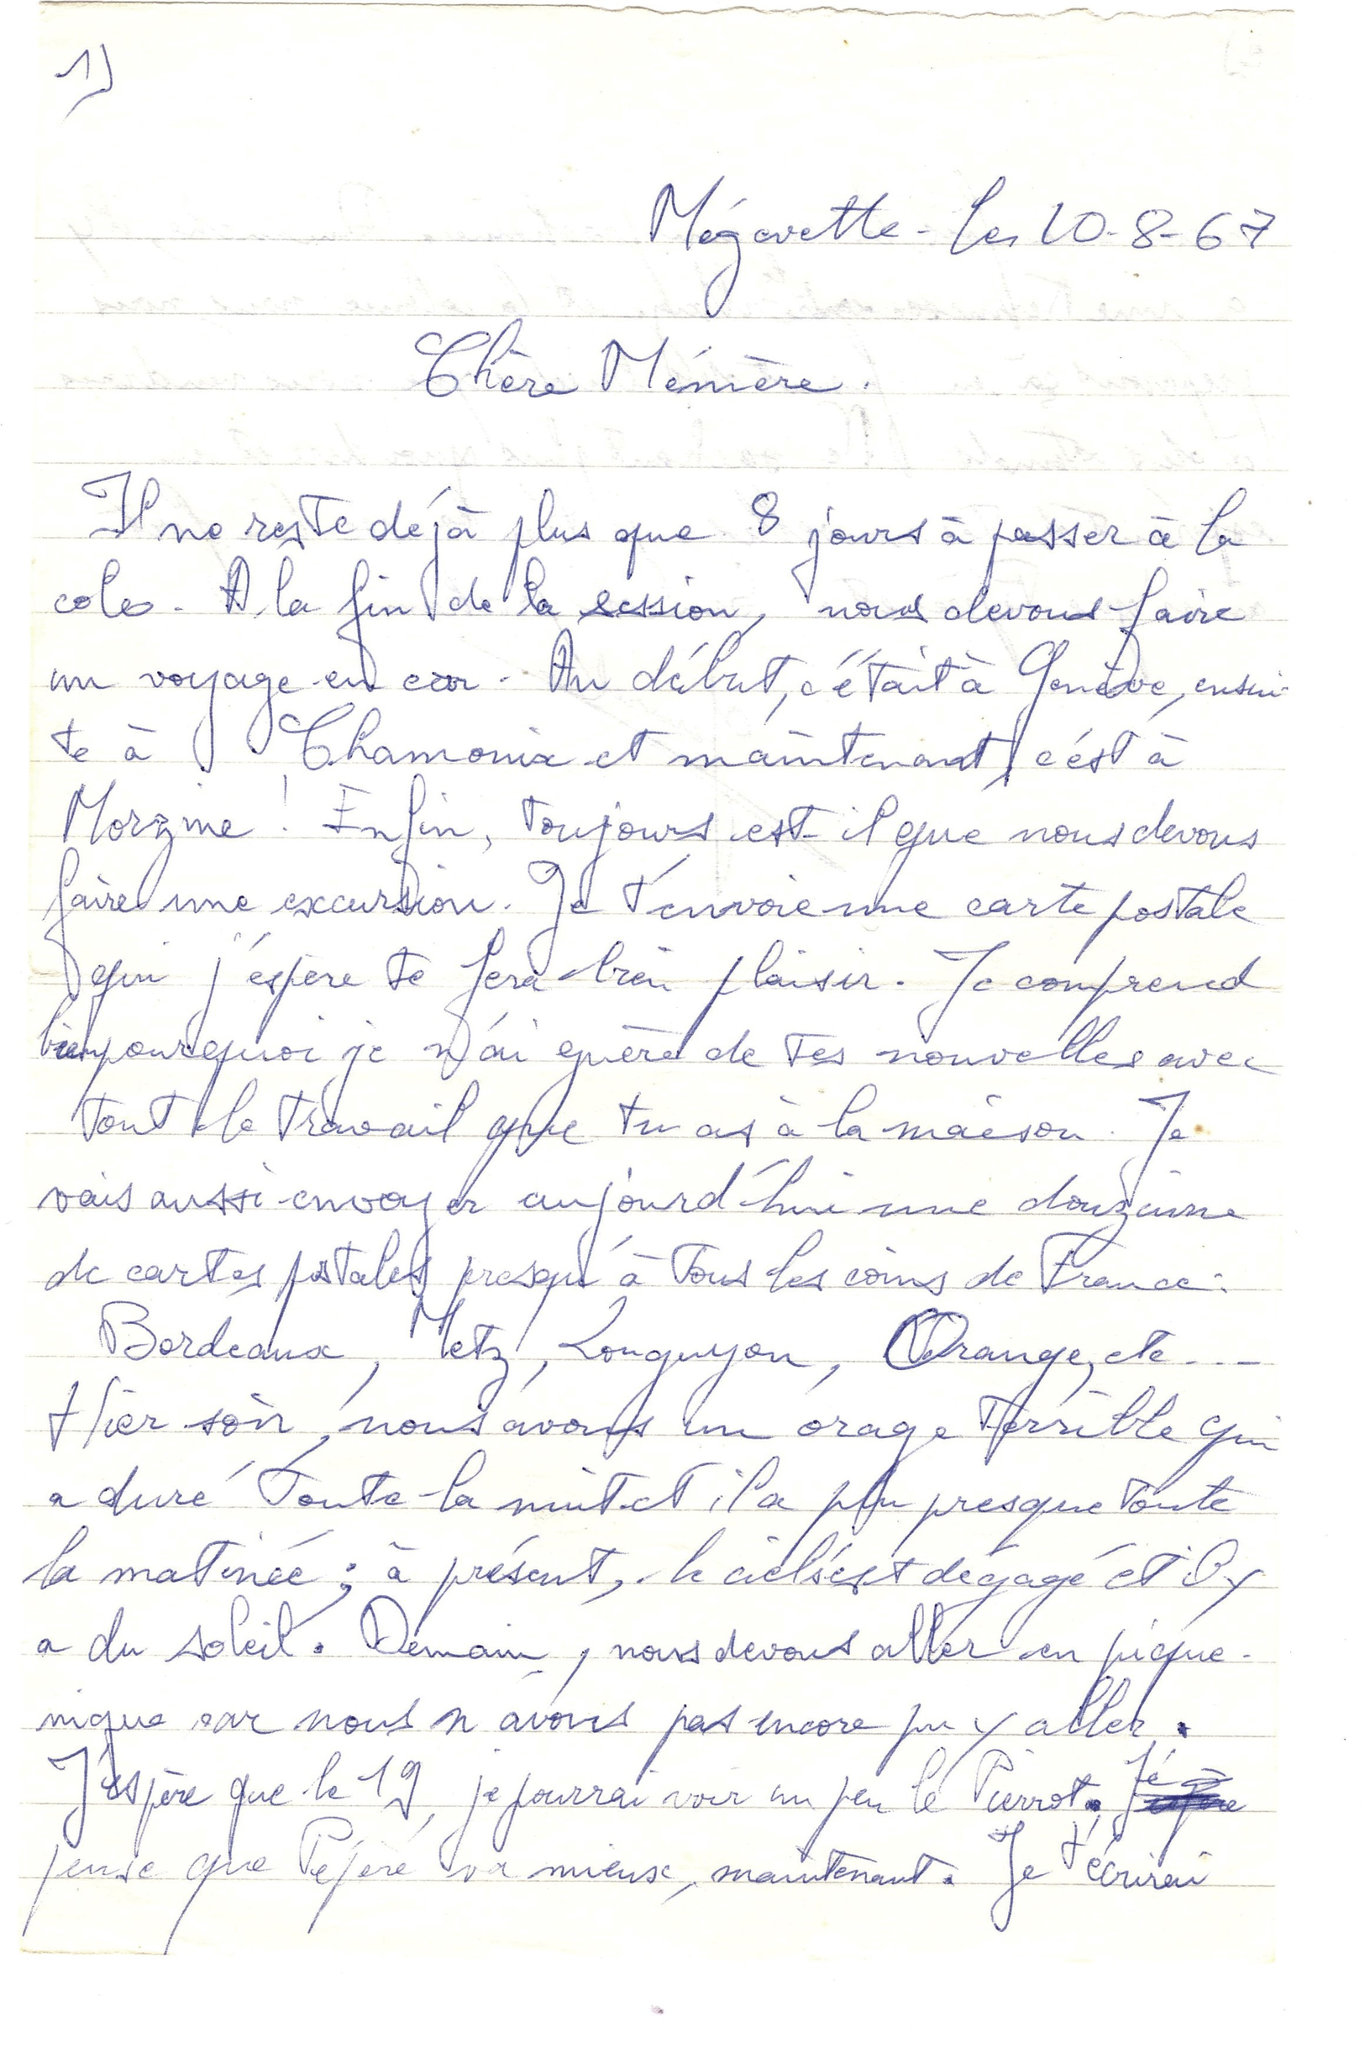 1)
Mégevette - le 10-8-67
Chère Mémère.
Il ne reste déjà plus que 8 jours à passer à la
colo. A la fin de la session, nous devons faire
un voyage en car. Au début, c'était à Genève, ensui-
te à Chamonix et maintenant, c'est à
Morzine ! Enfin, toujours est-il que nous devons
faire une excursion. Je t'envoie une carte postale
qui j'espère te fera bien plaisir. Je comprend
bien pourquoi je n'ai guère de tes nouvelles avec
tout le travail que tu as à la maison. Je
vais aussi envoyer aujourd'hui une douzaine
de cartes postales presqu'à tous les coins de France :
Bordeaux, Metz, Longuyon, Orange, etc ...
Hier soir, nous avons un orage terrible qui
a duré toute la nuit et il a plu presque toute
la matinée ; à présent, le ciel s'est dégagé et il y
a du soleil. Demain, nous devons aller en pique-
nique car nous n'avons pas encore pu y aller.
J'espère que le 19, je pourrai voir un peu le Pierrot. Je
pense que Pépère va mieux, maintenant. Je t'écrirai